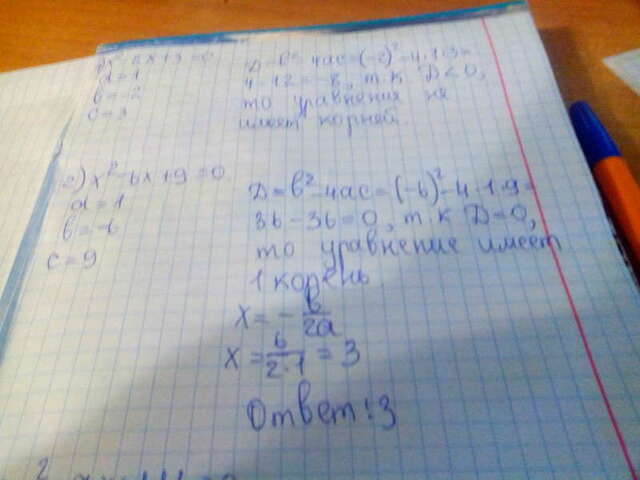 x²-2x+3=0
a=1
b=-2
c=3
D=b²-4ac=(-2)²-4·1·3=
4-12=-8, т.к D<0,
то уравнения не
имеет корней.
с) x²-6x+9=0
a=1
b=-6
c=9
D=b²-4ac=(-6)²-4·1·9=
36-36=0, т.к D=0,
то уравнение имеет
1 корень.
x=-b/2a
x=6/2·1=3
Ответ:3